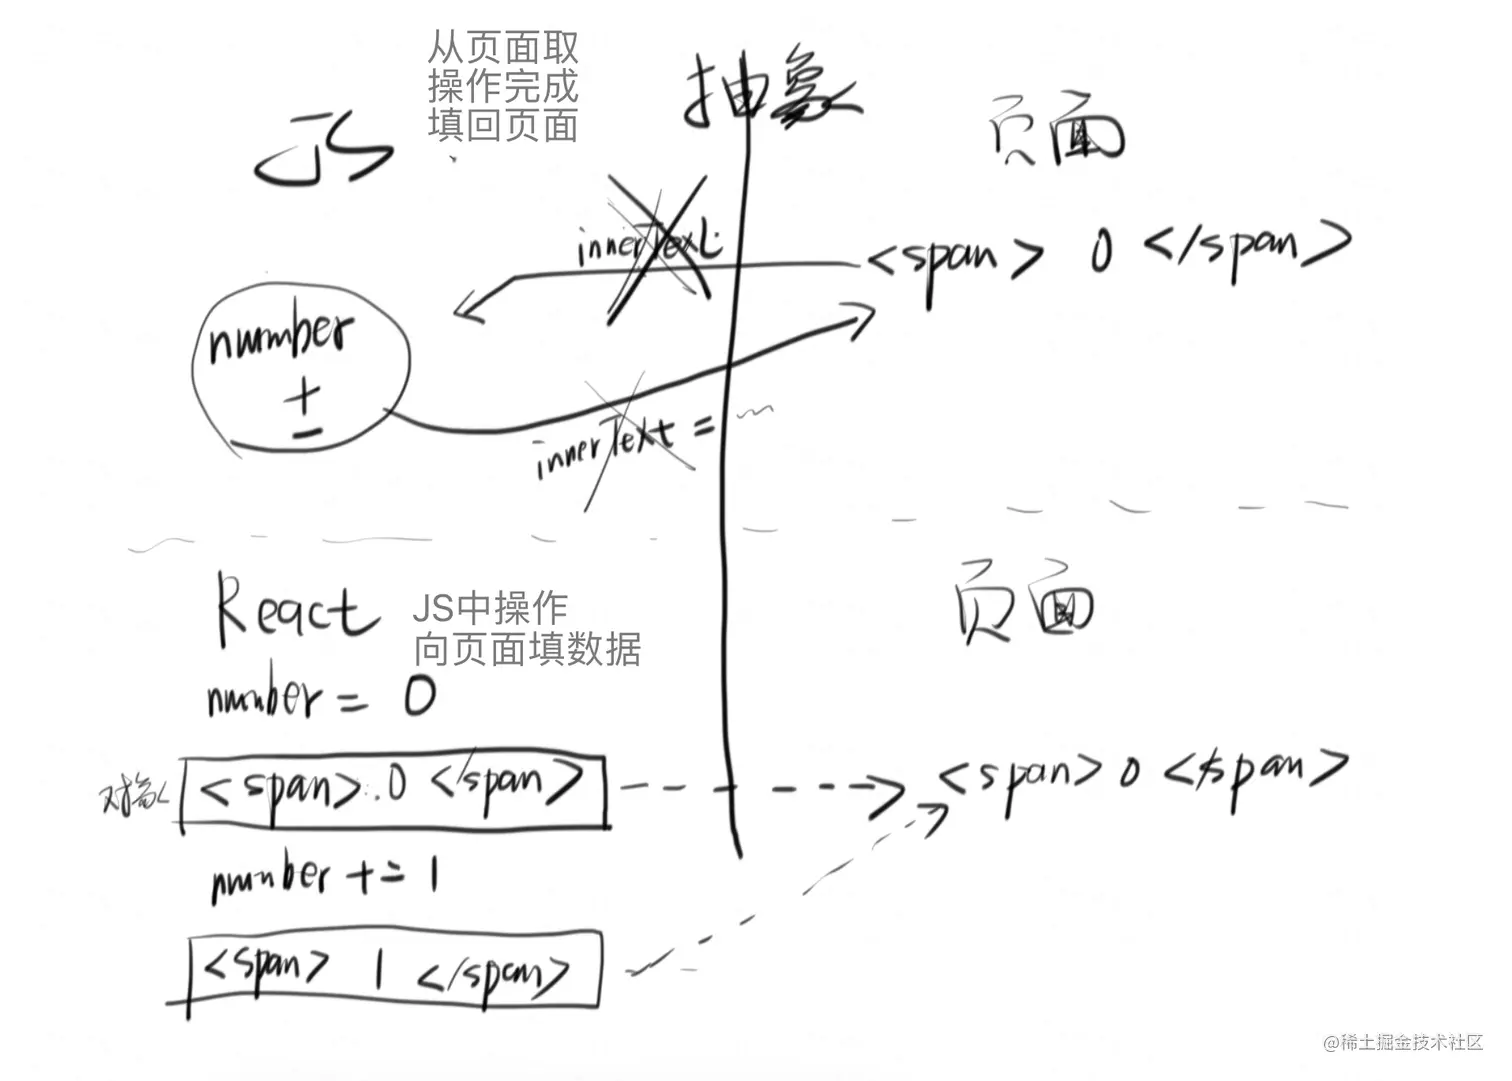 从页面取
操作完成
填回页面
JS
抽象
页面
innerText
<span> 0 </span>
number
+
-
innerText =
React
JS中操作
向页面填数据
页面
number = 0
对象
<span> 0 </span>
<span> 0 </span>
number += 1
<span> 1 </span>
@稀土掘金技术社区